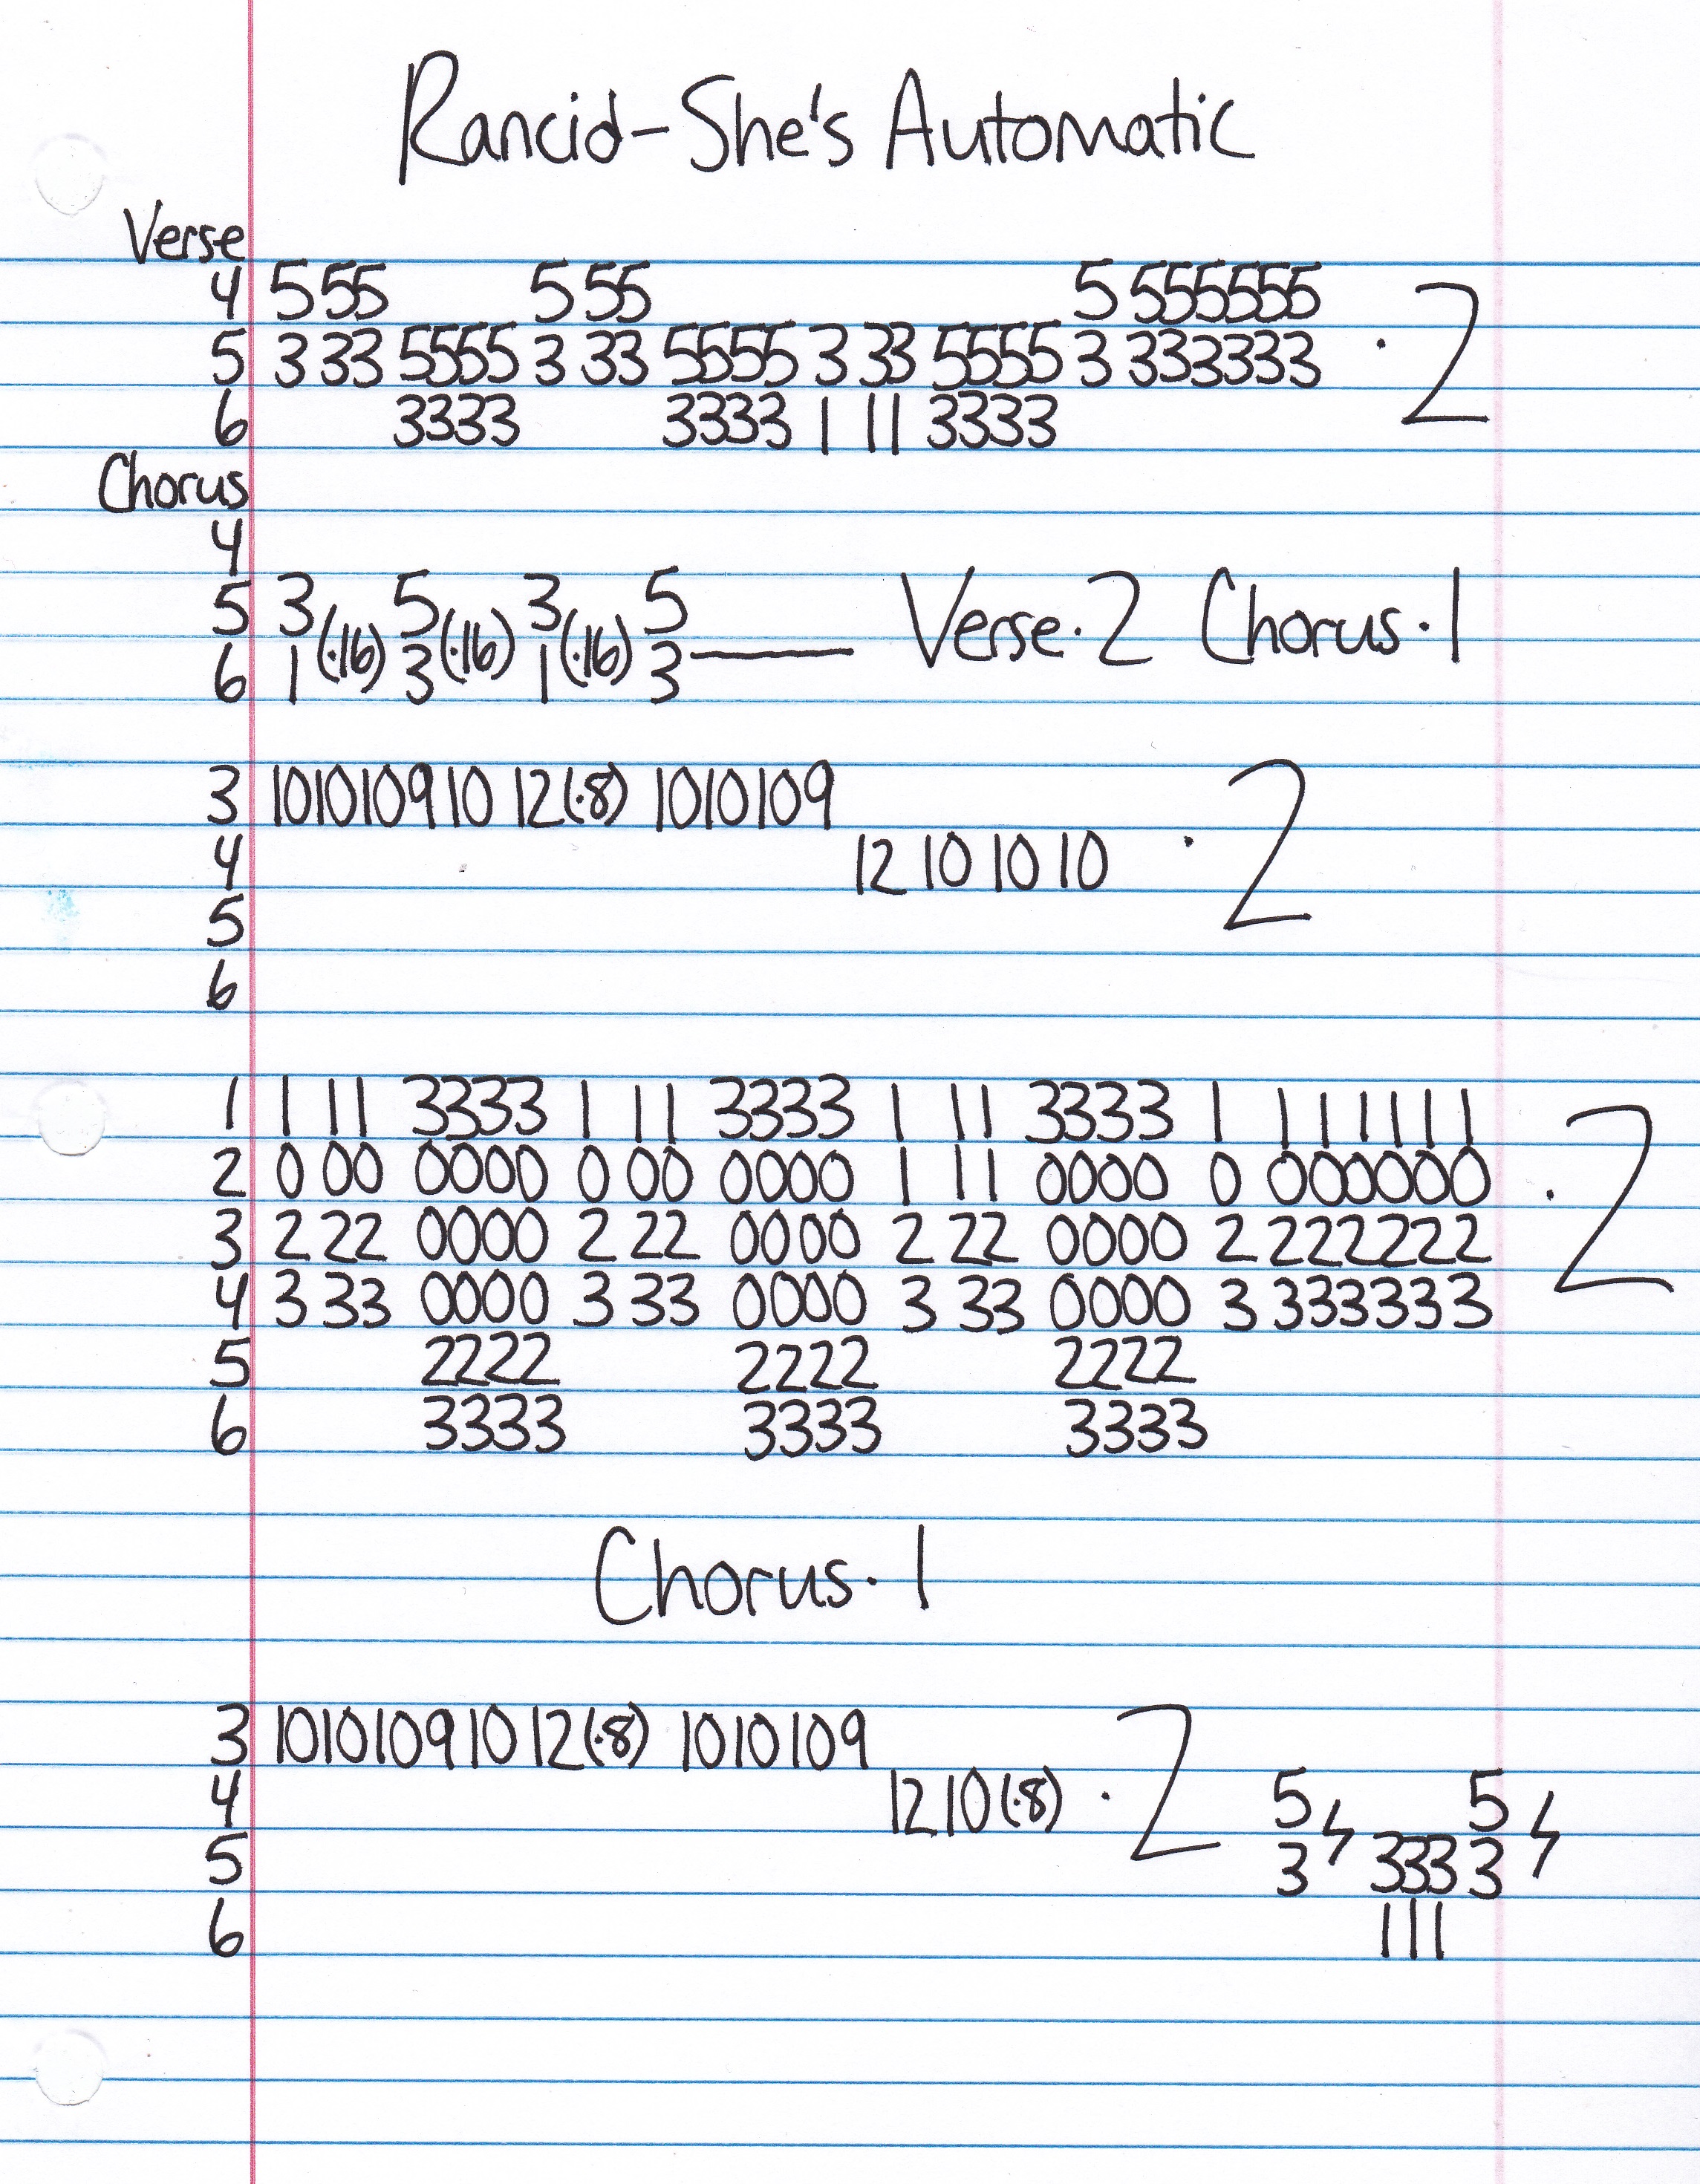 Rancid-She's Automatic
Verse
4 5 55 5 55 5 555555
5 3 33 5555 3 33 5555 3 33 5555 3 333333 · 2
6 3333 3333 1 11 3333
Chorus
4
5 3 5 3 5
(·16) (·16) (·16) Verse·2 Chorus·1
6 1 3 1 3
3 10 10 10 9 10 12(·8) 10 10 10 9
4 12 10 10 10 · 2
5
6
1 1 11 3333 1 11 3333 1 11 3333 1 111111
2 0 00 0000 0 00 0000 1 11 0000 0 000000 · 2
3 2 22 0000 2 22 0000 2 22 0000 2 222222
4 3 33 0000 3 33 0000 3 33 0000 3 333333
5 2222 2222 2222
6 3333 3333 3333
Chorus·1
3 10 10 10 9 10 12(·8) 10 10 10 9
4 12 10(·8) · 2 5 5
5 3 333 3
6 111